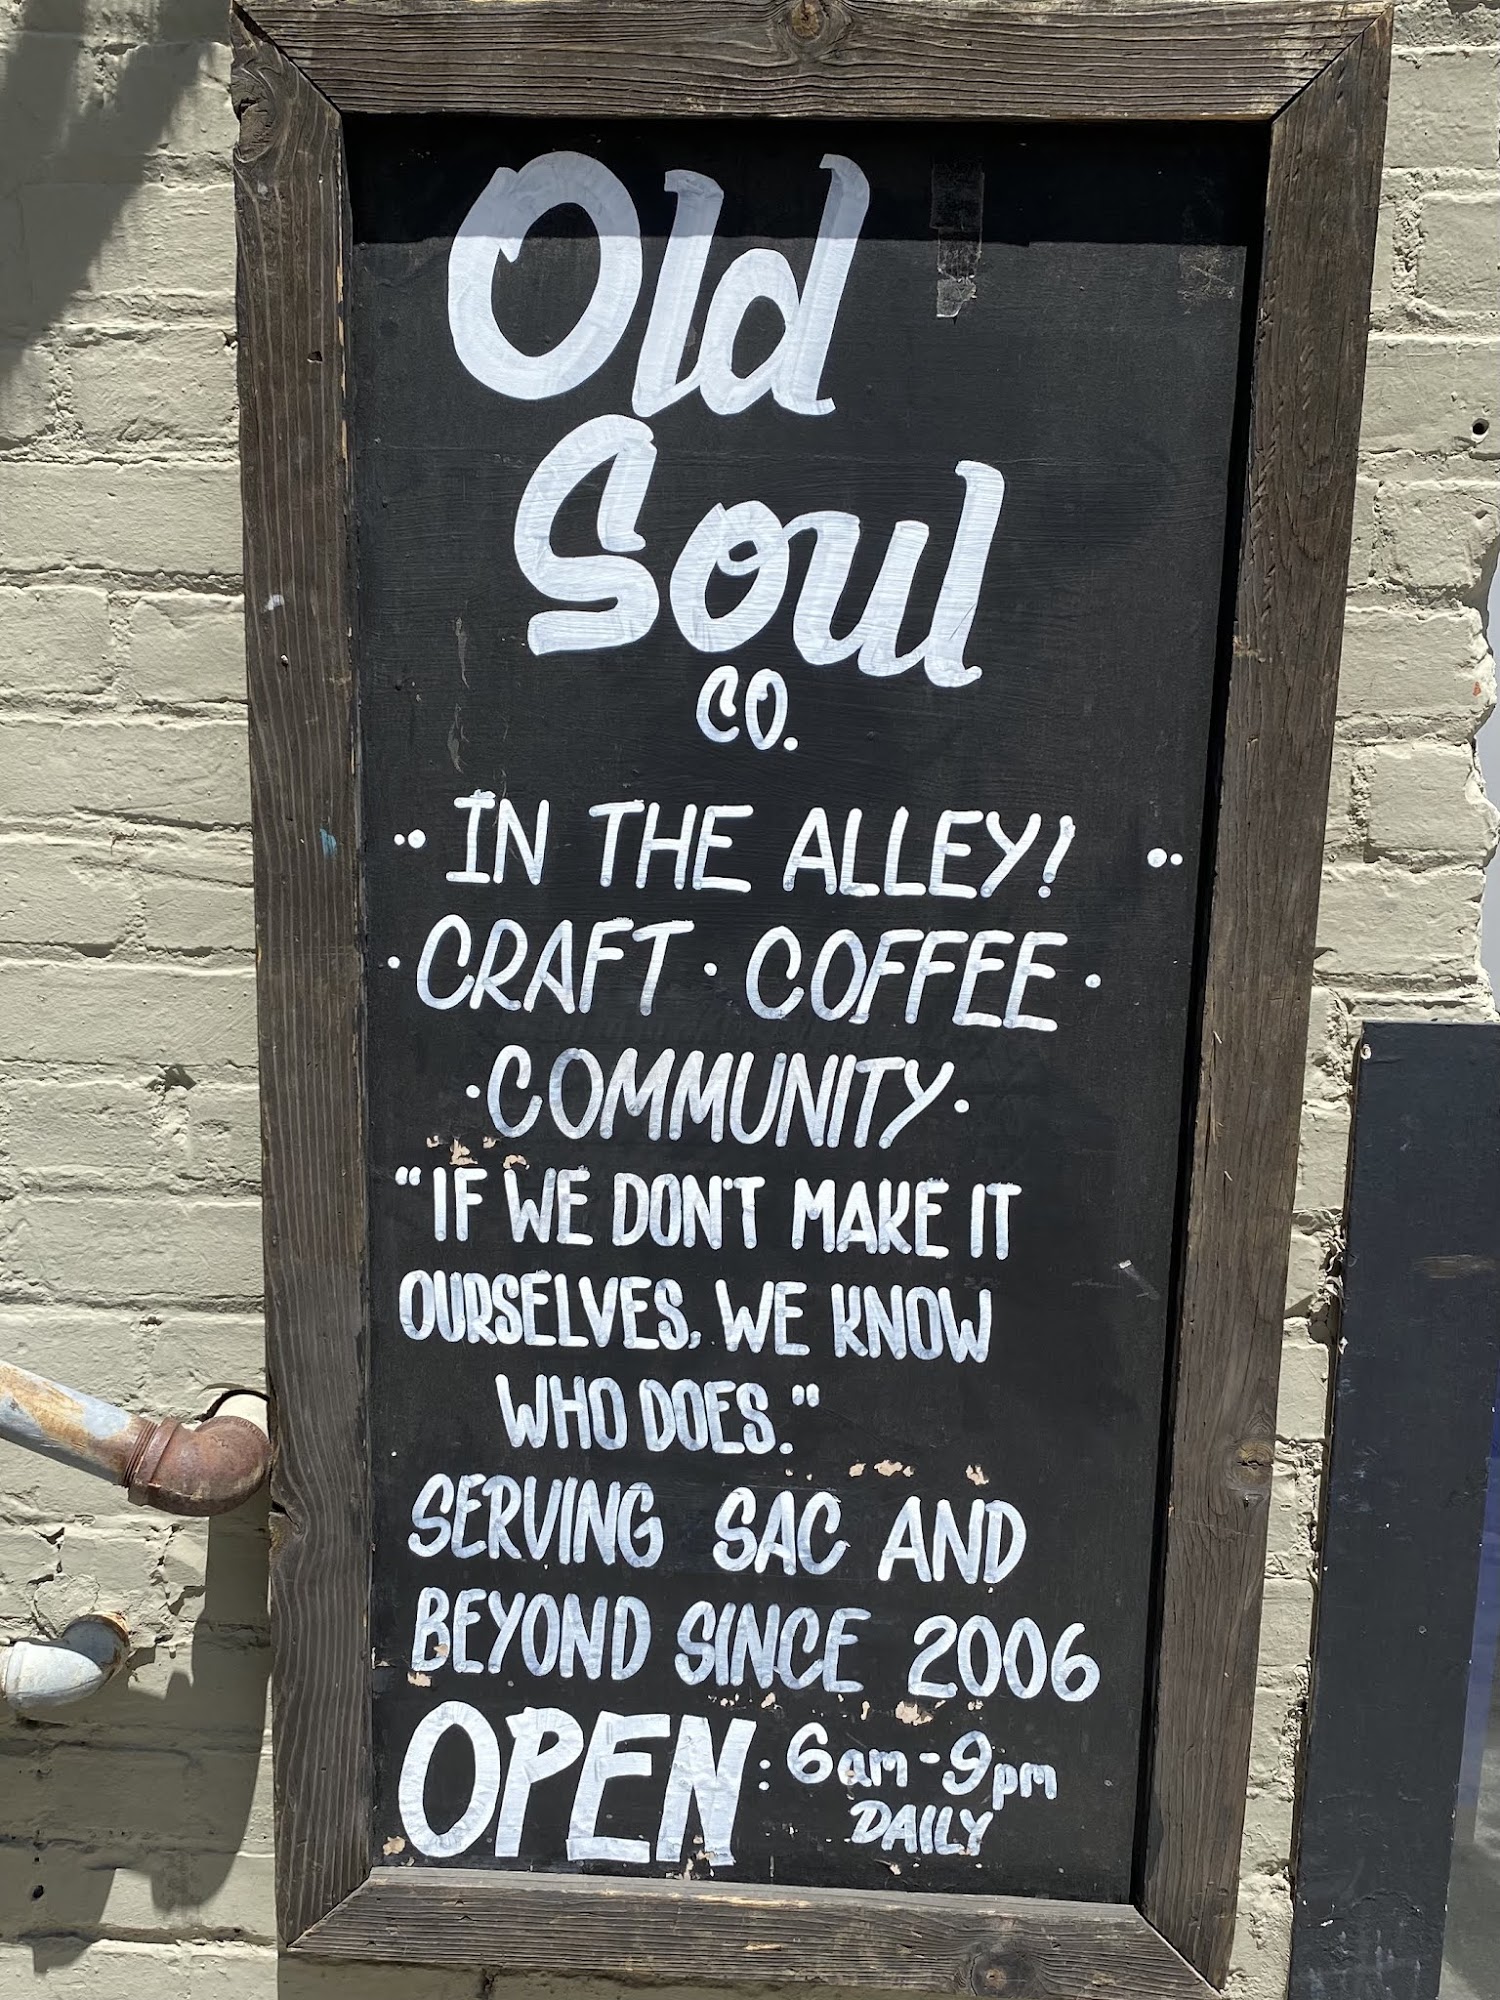 Old
Soul
CO.
·• IN THE ALLEY! •·
· CRAFT · COFFEE ·
· COMMUNITY ·
"IF WE DON'T MAKE IT
OURSELVES, WE KNOW
WHO DOES."
SERVING SAC AND
BEYOND SINCE 2006
OPEN: 6am-9pm
DAILY